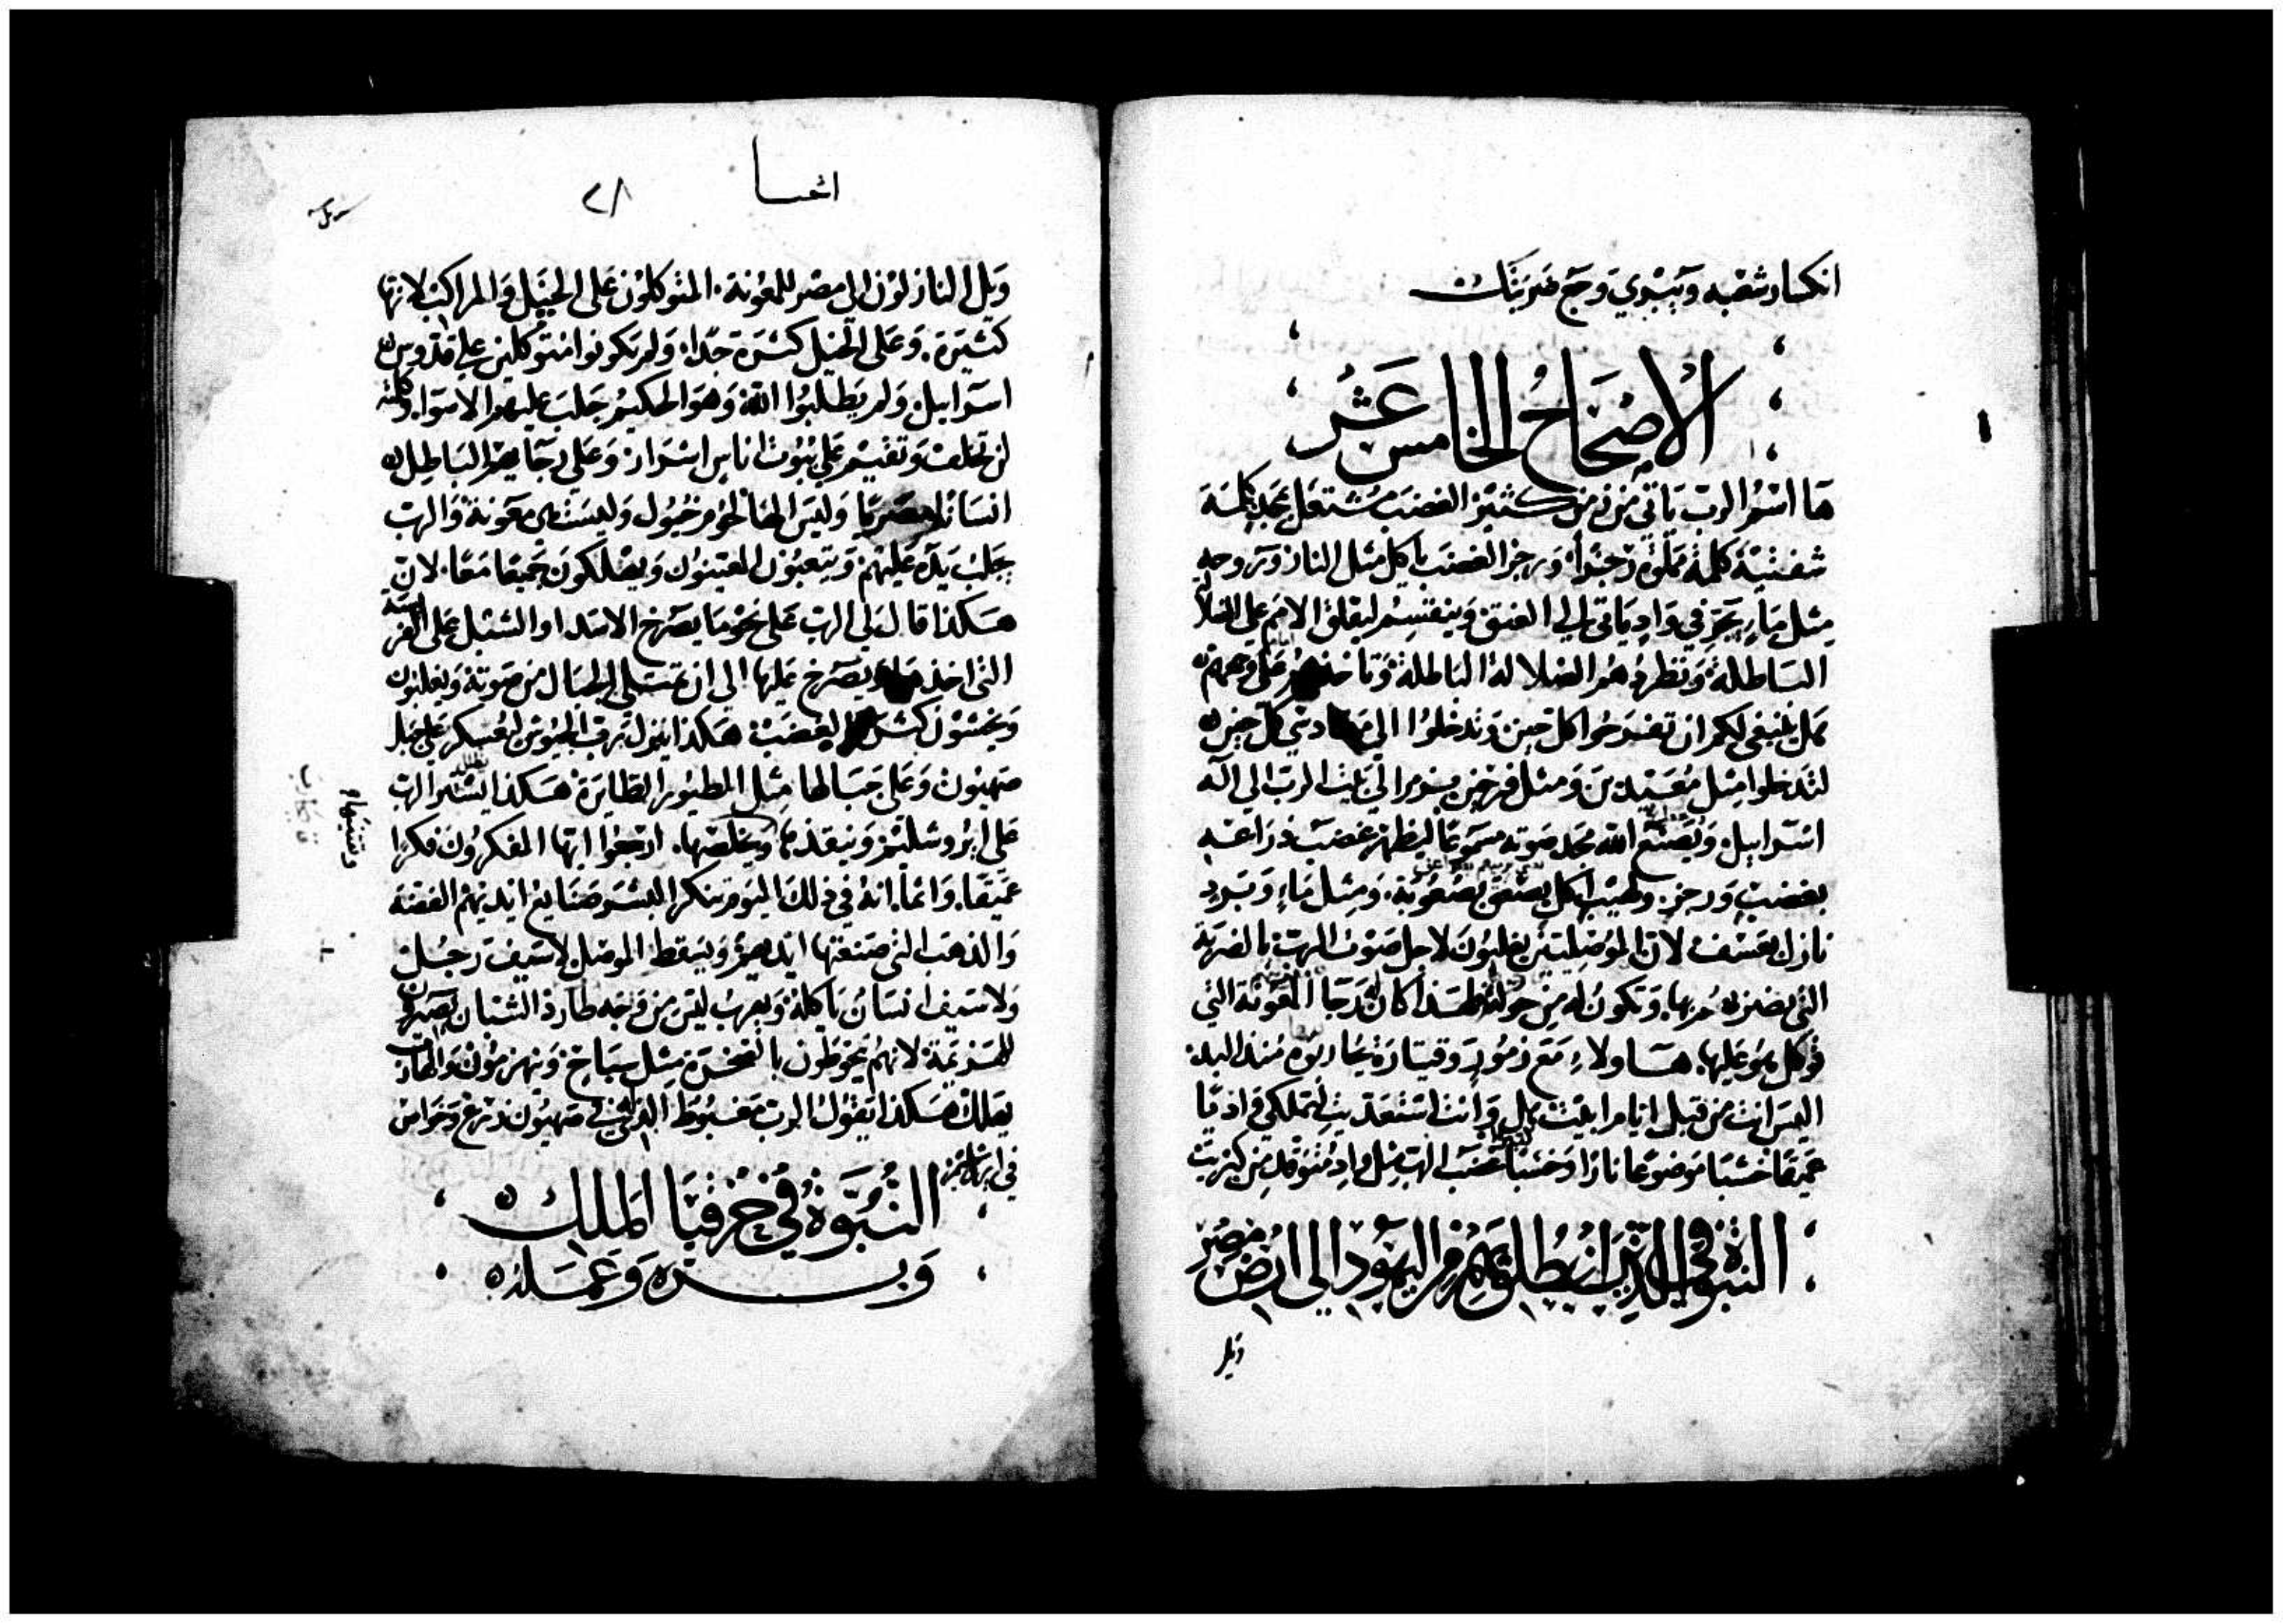 انكسار شعبه ويبري وجع ضربتك
الاصحاح الخامس عشر
ها اسم الرب ياتي من زمن كثير الغضب مشتعل بمجد كلمة
شفتيه كلمة مملوة رجزا. ورجز الغضب ياكل مثل النار وتروحه
مثل ماء يجر في واد ياتي الي العنق وينقسم ليقلق الامم علي الضلا
الباطلة وتطردهم الضلالة الباطلة وتاخذهم علي وجههم
هل ينبغي لكم ان تفرحوا كل حين وتدخلوا الي دني كل حين
لتدخلوا مثل معيدين ومثل فرحين بمزمر الي بيت الرب الي اله
اسراييل. ويصنع الله مجد صوته مسموعا ليظهر غضب ذراعه
بغضب ورجز. ولهيب ياكل يصعق بصعوبة. ومثل ماء وبرد
نازل بعسف لان الموصليين يغلبون لاجل صوت الرب بالضربة
التي يضربهم بها. وتكون له من حوله لهذا كان الرجا المعونة التي
توكل هو عليها. هاولاء مع زمور وقيتارة يحاربوه منذ البد
اليس انت من قبل ايام ابليت بل وانت استعديت لتملك واديا
عميقا خشبا موضوعا نارا وخشبا غضب الرب مثل واد متوقد من كبريت
النبوة في الذين انطلق بهم من اليهود الي ارض مصر
ويل
اشعيا
٢٨
ويل النازلون الي مصر للمعونة. المتوكلون علي الخيل والمراكب لانها
كثيرة. وعلى الخيل كثرة جدا. ولم يكونوا متوكلين علي قدوس
اسراييل. ولم يطلبوا الله. وهو الحكيم جلب عليهم الاسوا. وكلمته
لن تخلف وتقيم علي بيوت اناس اشرار. وعلى رجاهم الباطل
انسانا مصريا وليس الها لحوم خيول وليست هي معونة والرب
يجلب يده عليهم ويتعبون المعينون ويهلكون جميعا معا. لان
هكذا قال لي الرب علي نحو ما يصرخ الاسد او الشبل على الفريسة
التي اخذها ويصرخ عليها الي ان تمتلي الجبال من صوته ويغلبون
ويخشون كثرة الغضب هكذا ينزل رب الجيوش ليعسكر علي جبل
صهيون وعلى جبالها مثل الطيور الطايرة هكذا يستر الرب
على ايروشليم وينقذها ويخلصها. ارجعوا ايها المفكرون فكرا
عميقا. واثما. انه في ذلك اليوم ينكر البشر صنايع ايديهم الفضة
والذهب التي صنعتها ايديهم ويسقط الموصل لا سيف رجل
ولا سيف انسان ياكله ويهرب ليس من وجه طارد الشبان يصيرون
للهزيمة لانهم يحوطون بالصخرة مثل سياج وينهزمون والهارب
يهلك هكذا يقول الرب مغبوط الذي في صهيون زرع وخواص
في ايروشليم
النبوة في حزقيا الملك
وبره وعمله